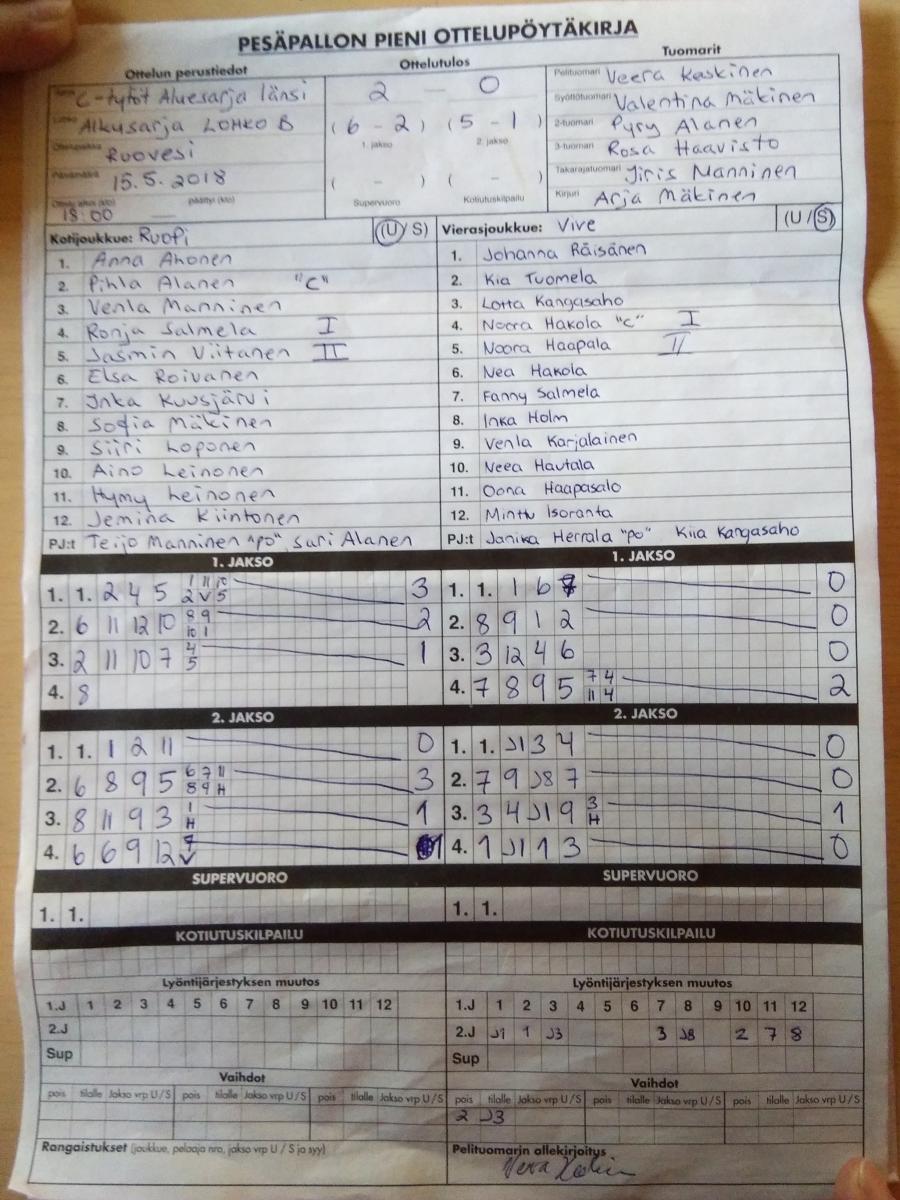 PESÄPALLON PIENI OTTELUPÖYTÄKIRJA
Ottelun perustiedot Ottelutulos Tuomarit
C-tytöt Aluesarja länsi 2 — 0 Pelituomari Veera Keskinen
Lohko Alkusarja LOHKO B (6 - 2) (5 - 1) Syöttötuomari Valentina Mäkinen
1. jakso 2. jakso 2-tuomari Pyry Alanen
Ottelupaikka Ruovesi 3-tuomari Rosa Haavisto
Päivämäärä 15.5.2018 ( - ) ( - ) Takarajatuomari Jiris Manninen
Supervuoro Kotiutuskilpailu Kirjuri Arja Mäkinen
Ottelu alkoi (klo) 18:00 päättyi (klo)
Kotijoukkue: Ruopi (U/S) Vierasjoukkue: Vive (U/S)
1. Anna Ahonen 1. Johanna Räisänen
2. Pihla Alanen "C" 2. Kia Tuomela
3. Venla Manninen 3. Lotta Kangasaho
4. Ronja Salmela I 4. Noora Hakola "C" I
5. Jasmin Viitanen II 5. Noora Haapala II
6. Elsa Roivanen 6. Nea Hakola
7. Inka Kuusjärvi 7. Fanny Salmela
8. Sofia Mäkinen 8. Inka Holm
9. Siiri Loponen 9. Venla Karjalainen
10. Aino Leinonen 10. Neea Hautala
11. Hymy Leinonen 11. Oona Haapasalo
12. Jemina Kiintonen 12. Minttu Isoranta
PJ:t Teijo Manninen "po", Sari Alanen PJ:t Janika Herrala "po" Kiia Kangasaho
1. JAKSO 1. JAKSO
1. 1. 2 4 5 1 11 10 3 1. 1. 1 6 7 0
2 V 5
2. 6 11 12 10 8 9 2 2. 8 9 1 2 0
10 1
3. 2 11 10 7 4 1 3. 3 12 4 6 0
5
4. 8 4. 7 8 9 5 7 4 2
11 4
2. JAKSO 2. JAKSO
1. 1. 1 2 11 0 1. 1. J1 3 4 0
2. 6 8 9 5 6 7 11 3 2. 7 9 J8 7 0
8 9 H
3. 8 11 9 3 1 1 3. 3 4 J1 9 3 1
H H
4. 6 6 9 12 7 1 4. 1 J1 1 3 0
V
SUPERVUORO SUPERVUORO
1. 1. 1. 1.
KOTIUTUSKILPAILU KOTIUTUSKILPAILU
Lyöntijärjestyksen muutos Lyöntijärjestyksen muutos
1.J 1 2 3 4 5 6 7 8 9 10 11 12 1.J 1 2 3 4 5 6 7 8 9 10 11 12
2.J 2.J J1 1 J3 3 J8 2 7 8
Sup Sup
Vaihdot Vaihdot
pois tilalle Jakso vrp U/S pois tilalle Jakso vrp U/S pois tilalle Jakso vrp U/S pois tilalle Jakso vrp U/S pois tilalle Jakso vrp U/S pois tilalle Jakso vrp U/S
2 J3
Rangaistukset (joukkue, pelaaja nro, jakso vrp U/S ja syy) Pelituomarin allekirjoitus